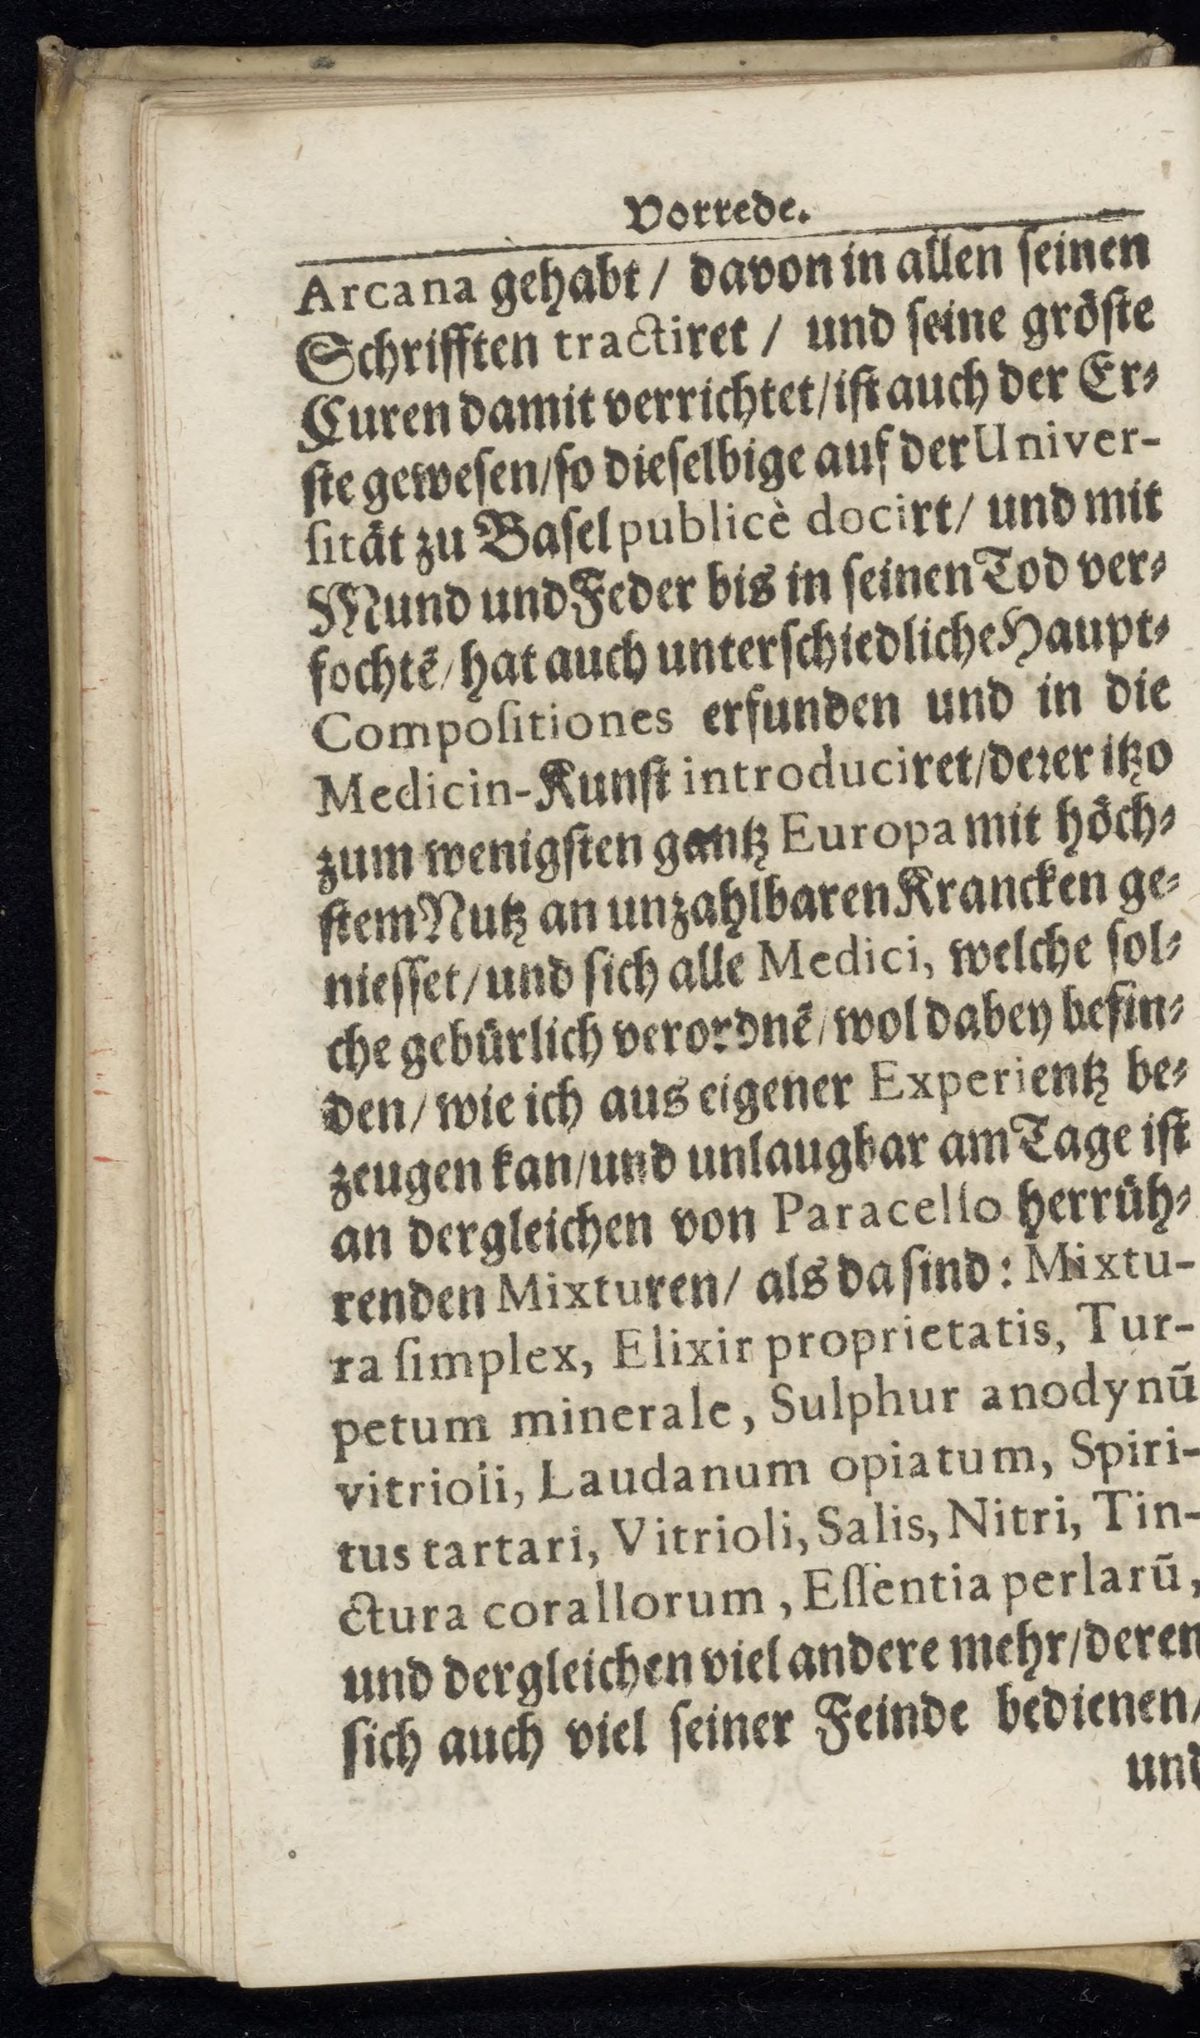 Vorrede.
Arcana gehabt / davon in allen ſeinen
Schrifften tractiret / und ſeine gröſte
Curen damit verrichtet/iſt auch der Er⸗
ſte geweſen/ſo dieſelbige auf der Univer-
ſität zu Baſel publicè docirt/ und mit
Mund und Feder bis in ſeinen Tod ver⸗
fochtē/hat auch unterſchiedliche Haupt⸗
Compoſitiones erfunden und in die
Medicin-Kunſt introduciret/derer itzo
zum wenigſten gantz Europa mit höch⸗
ſtem Nutz an unzahlbaren Krancken ge⸗
nieſſet/und ſich alle Medici, welche ſol⸗
che gebürlich verordnē/wol dabey befin⸗
den/ wie ich aus eigener Experientz be⸗
zeugen kan/und unlaugbar am Tage iſt
an dergleichen von Paracelſo herrüh⸗
renden Mixturen/ als da ſind: Mixtu-
ra ſimplex, Elixir proprietatis, Tur-
petum minerale, Sulphur anodynū
vitrioli, Laudanum opiatum, Spiri-
tus tartari, Vitrioli, Salis, Nitri, Tin-
ctura corallorum, Eſſentia perlarū,
und dergleichen viel andere mehr/deren
ſich auch viel ſeiner Feinde bedienen/
und